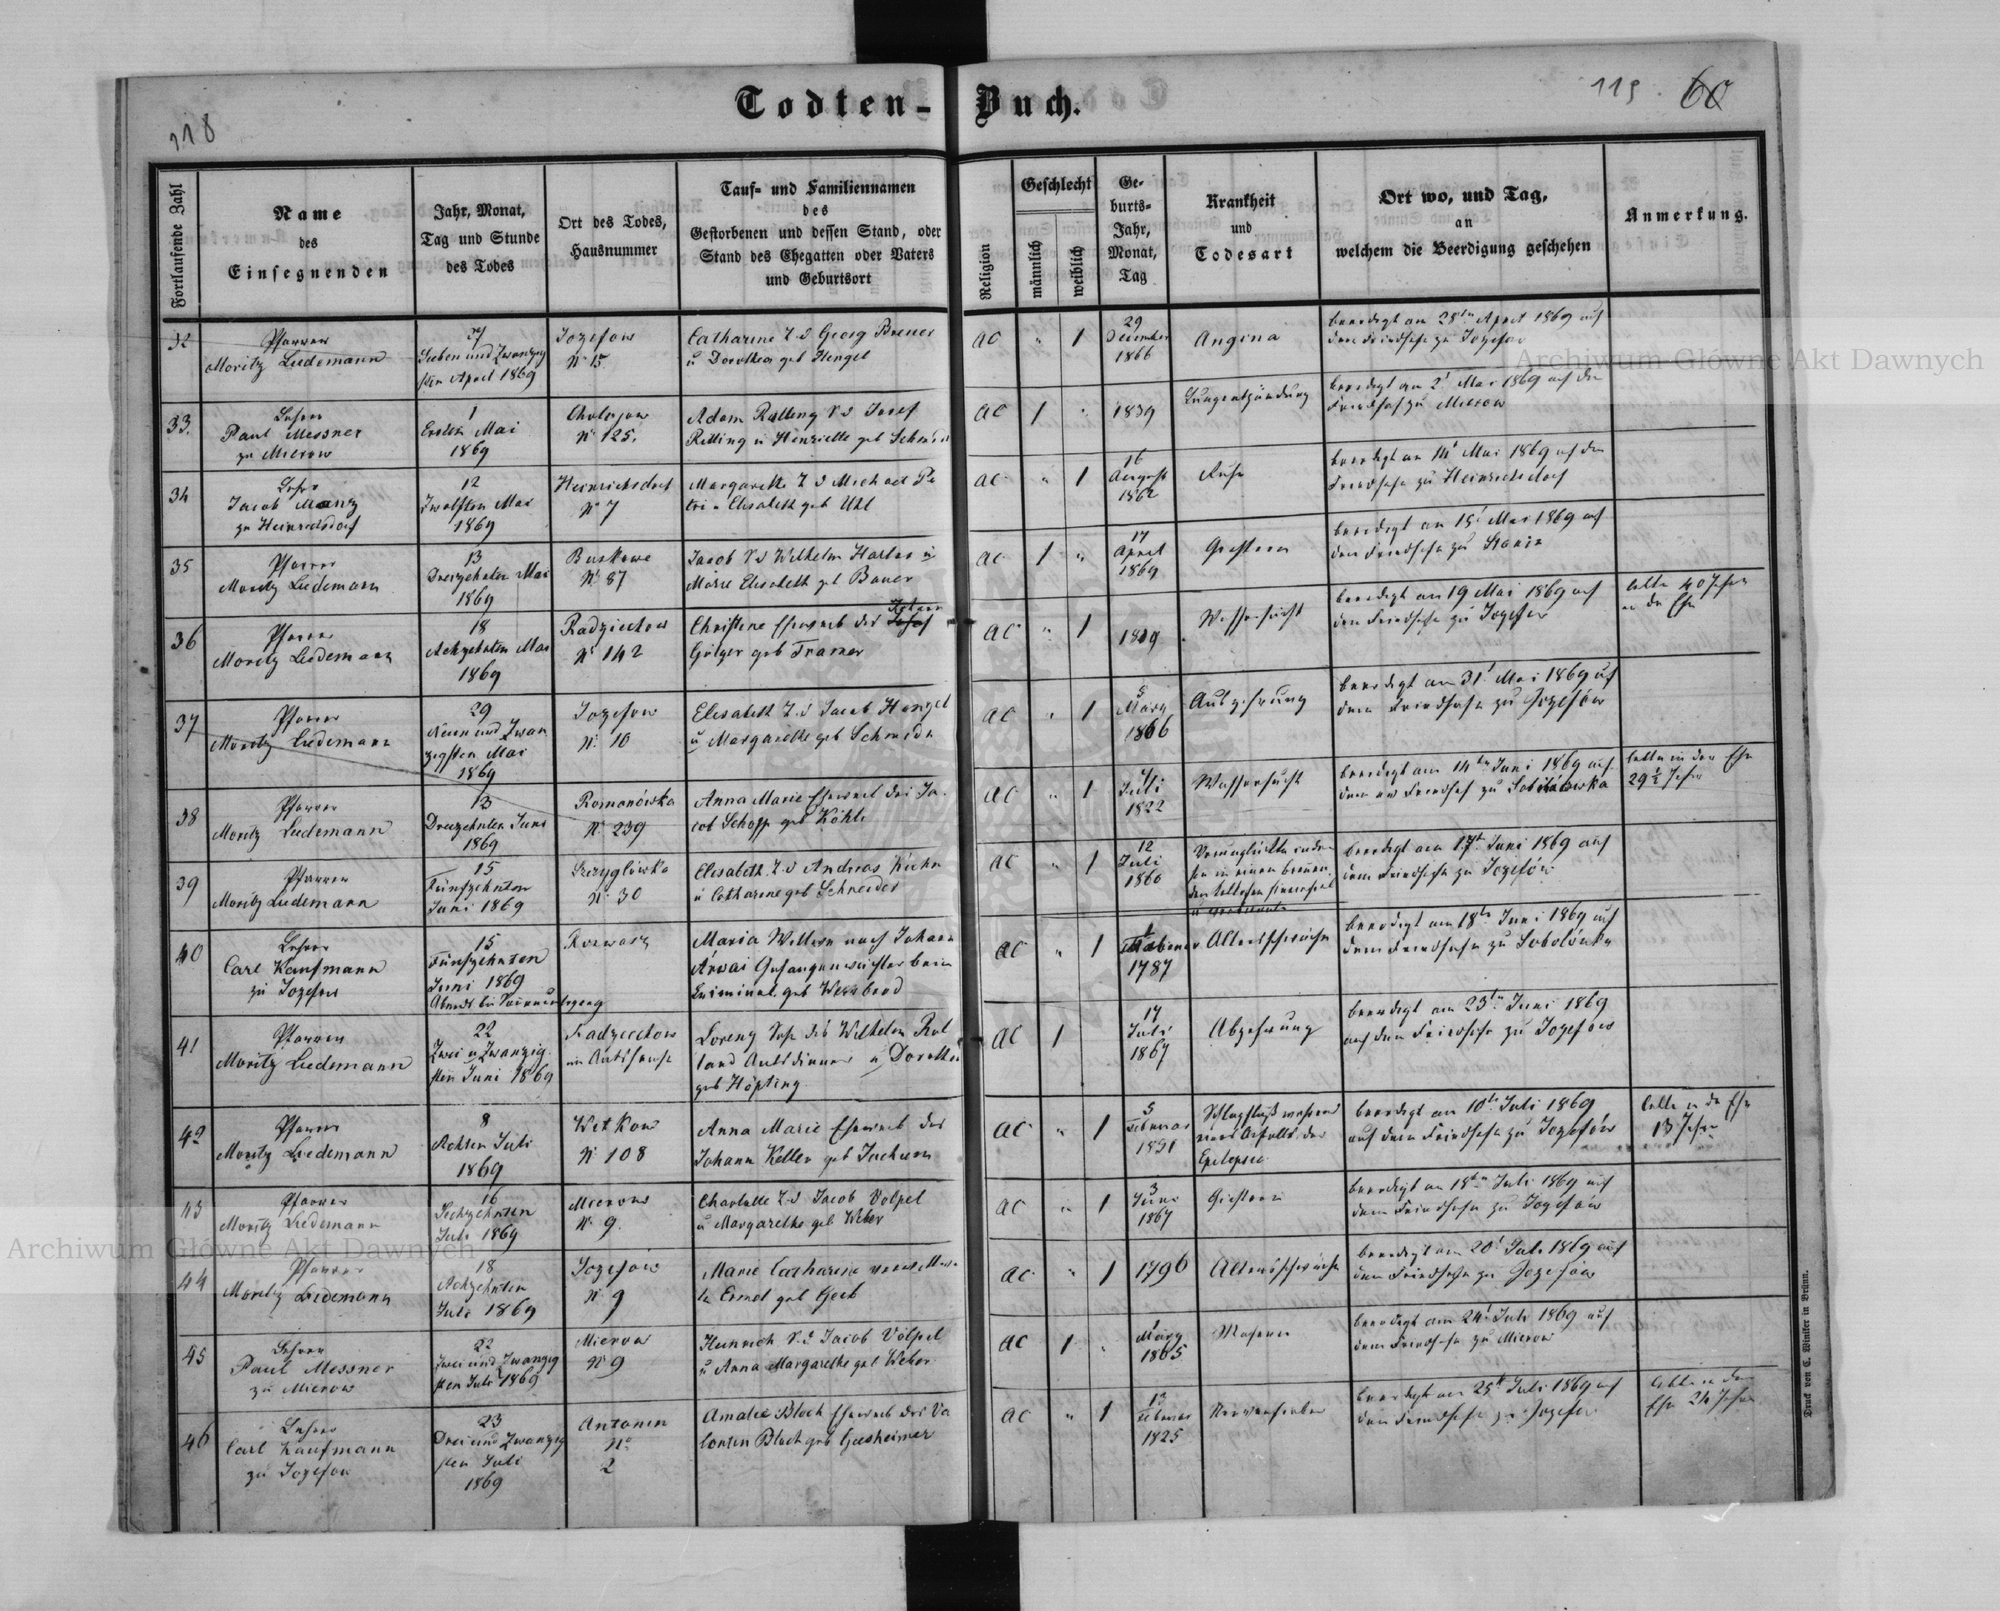 118
Todten-Buch.
119. 60
Fortlaufende Zahl
Name
des
Einsegnenden
Jahr, Monat,
Tag und Stunde
des Todes
Ort des Todes,
Hausnummer
Tauf- und Familiennamen
des
Gestorbenen und dessen Stand, oder
Stand des Ehegatten oder Vaters
und Geburtsort
Religion
Geschlecht
männlich
weiblich
Ge-
burts-
Jahr,
Monat,
Tag
Krankheit
und
Todesart
Ort wo, und Tag,
an
welchem die Beerdigung geschehen
Anmerkung.
32
Pfarrer
Moritz Liedemann
27
Sieben und Zwanzig
sten April 1869
Jozefow
N: 15
Catharine T. d Georg Breuer
u Dorothea geb Hengel
AC " 1
29
December
1866
Angina
beerdigt am 28ten April 1869 auf
dem Friedhofe zu Jozefow
33.
Lehrer
Paul Messner
zu Mierow
1
Ersten Mai
1869
Cholojow
N: 125.
Adam Rilling S. d Josef
Rilling u Henriette geb Schmidt
AC 1 "
1839
Lungentzündung
beerdigt am 2t Mai 1869 auf dem
Friedhof zu Mierow
34
Lehrer
Jacob Manz
zu Heinrichsdorf
12
Zwölften Mai
1869
Heinrichsdorf
N: 7
Margarethe T. d Michael Pe
tri u Elisabeth geb Uhl
AC " 1
16
August
1862
Ruhr
beerdigt am 14t Mai 1869 auf dem
Friedhofe zu Heinrichsdorf
35
Pfarrer
Moritz Liedemann
13
Dreizehnten Mai
1869
N: 87
Jacob S. d Wilhelm Harlos u
Marie Elisabeth geb Bauer
AC 1 "
17
April
1869
beerdigt am 15t Mai 1869 auf
dem Friedhofe zu Stanin
36
Pfarrer
Moritz Liedemann
18
Achzehnten Mai
1869
Radziechow
N: 142
Christine Eheweib des Johann
geb Framer
AC " 1
Wassersucht
beerdigt am 19 Mai 1869 auf
dem Friedhofe zu Jozefow
lebte 40 Jahre
in der Ehe
37
Pfarrer
Moritz Liedemann
29
Neun und Zwan
zigsten Mai
1869
Jozefow
N: 10
Elisabeth T. d Jacob Hengel
u Margarethe geb Schmidt
AC " 1
5
März
1866
Auszehrung
beerdigt am 31t Mai 1869 auf
dem Friedhofe zu Jozefów
38
Pfarrer
Moritz Liedemann
13
Dreizehnten Juni
1869
Romanówka
N: 239
Anna Marie Eheweib des Ja-
cob Schopp geb Köhle
AC " 1
Juli
1822
Wassersucht
beerdigt am 14ten Juni 1869 auf
dem Friedhof zu
lebte in der Ehe
29½ Jahre
39
Pfarrer
Moritz Liedemann
15
Fünfzehnten
Juni 1869
Strzyglówka
N: 30
Elisabeth T. d Andreas Kuhn
u Catharine geb Schneider
AC " 1
12
Juli
1860
beerdigt am 17t Juni 1869 auf
dem Friedhofe zu Jozefów
40
Lehrer
Carl Kaufmann
zu Jozefow
15
Fünfzehnten
Juni 1869
Abends bei Sonnenuntergang
Maria Witwe nach Johann
Arvai Gefangenwächter beim
Criminal geb
AC " 1
1
1787
Altersschwäche
beerdigt am 18ten Juni 1869 auf
dem Friedhofe zu
41
Pfarrer
Moritz Liedemann
22
Zwei u Zwanzig
sten Juni 1869
Radziechow
im Amtshause
Lorenz Sohn des Wilhelm Rol
land Amtsdiener u Dorothea
geb Höpting
AC 1
17
Juli
1867
Abzehrung
beerdigt am 23ten Juni 1869
auf dem Friedhofe zu Jozefow
42
Pfarrer
Moritz Liedemann
8
Achten Juli
1869
Witkow
N: 108
Anna Marie Eheweib des
Johann Keller geb Jachum
AC " 1
5
Februar
1831
Schlagfluß während
eines Anfalls der
Epilepsie
beerdigt am 10ten Juli 1869
auf dem Friedhofe zu Jozefów
lebte in der Ehe
13 Jahre
43
Pfarrer
Moritz Liedemann
16
Sechzehnten
Juli 1869
Mierow
N: 9.
Charlotte T. d Jacob Völpel
u Margarethe geb Weber
AC " 1
3
Juni
1867
beerdigt am 18ten Juli 1869 auf
dem Friedhofe zu Jozefów
44
Pfarrer
Moritz Liedemann
18
Achzehnten
Juli 1869
Jozefow
N: 9
Marie Catharine
geb
AC " 1
1796
Altersschwäche
beerdigt am 20t Juli 1869 auf
dem Friedhofe zu Jozefów
45
Lehrer
Paul Messner
zu Mierow
22
Zwei und Zwanzig
sten Juli 1869
Mierow
N: 9
Heinrich S. d Jacob Völpel
u Anna Margarethe geb Weber
AC 1 "
1
März
1865
Masern
beerdigt am 24t Juli 1869 auf
dem Friedhofe zu Mierow
46
Lehrer
Carl Kaufmann
zu Jozefow
23
Drei und Zwanzig
sten Juli
1869
Antonin
No
2
Amalie Bloch Eheweib des Va
lentin Bloch geb Geesheimer
AC " 1
13
Februar
1825
Nervenfieber
beerdigt am 25t Juli 1869 auf
dem Friedhofe zu Jozefow
lebte in der
Ehe 24 Jahre
Druck von C. Winiker in Brünn.
Archiwum Główne Akt Dawnych
Archiwum Główne Akt Dawnych